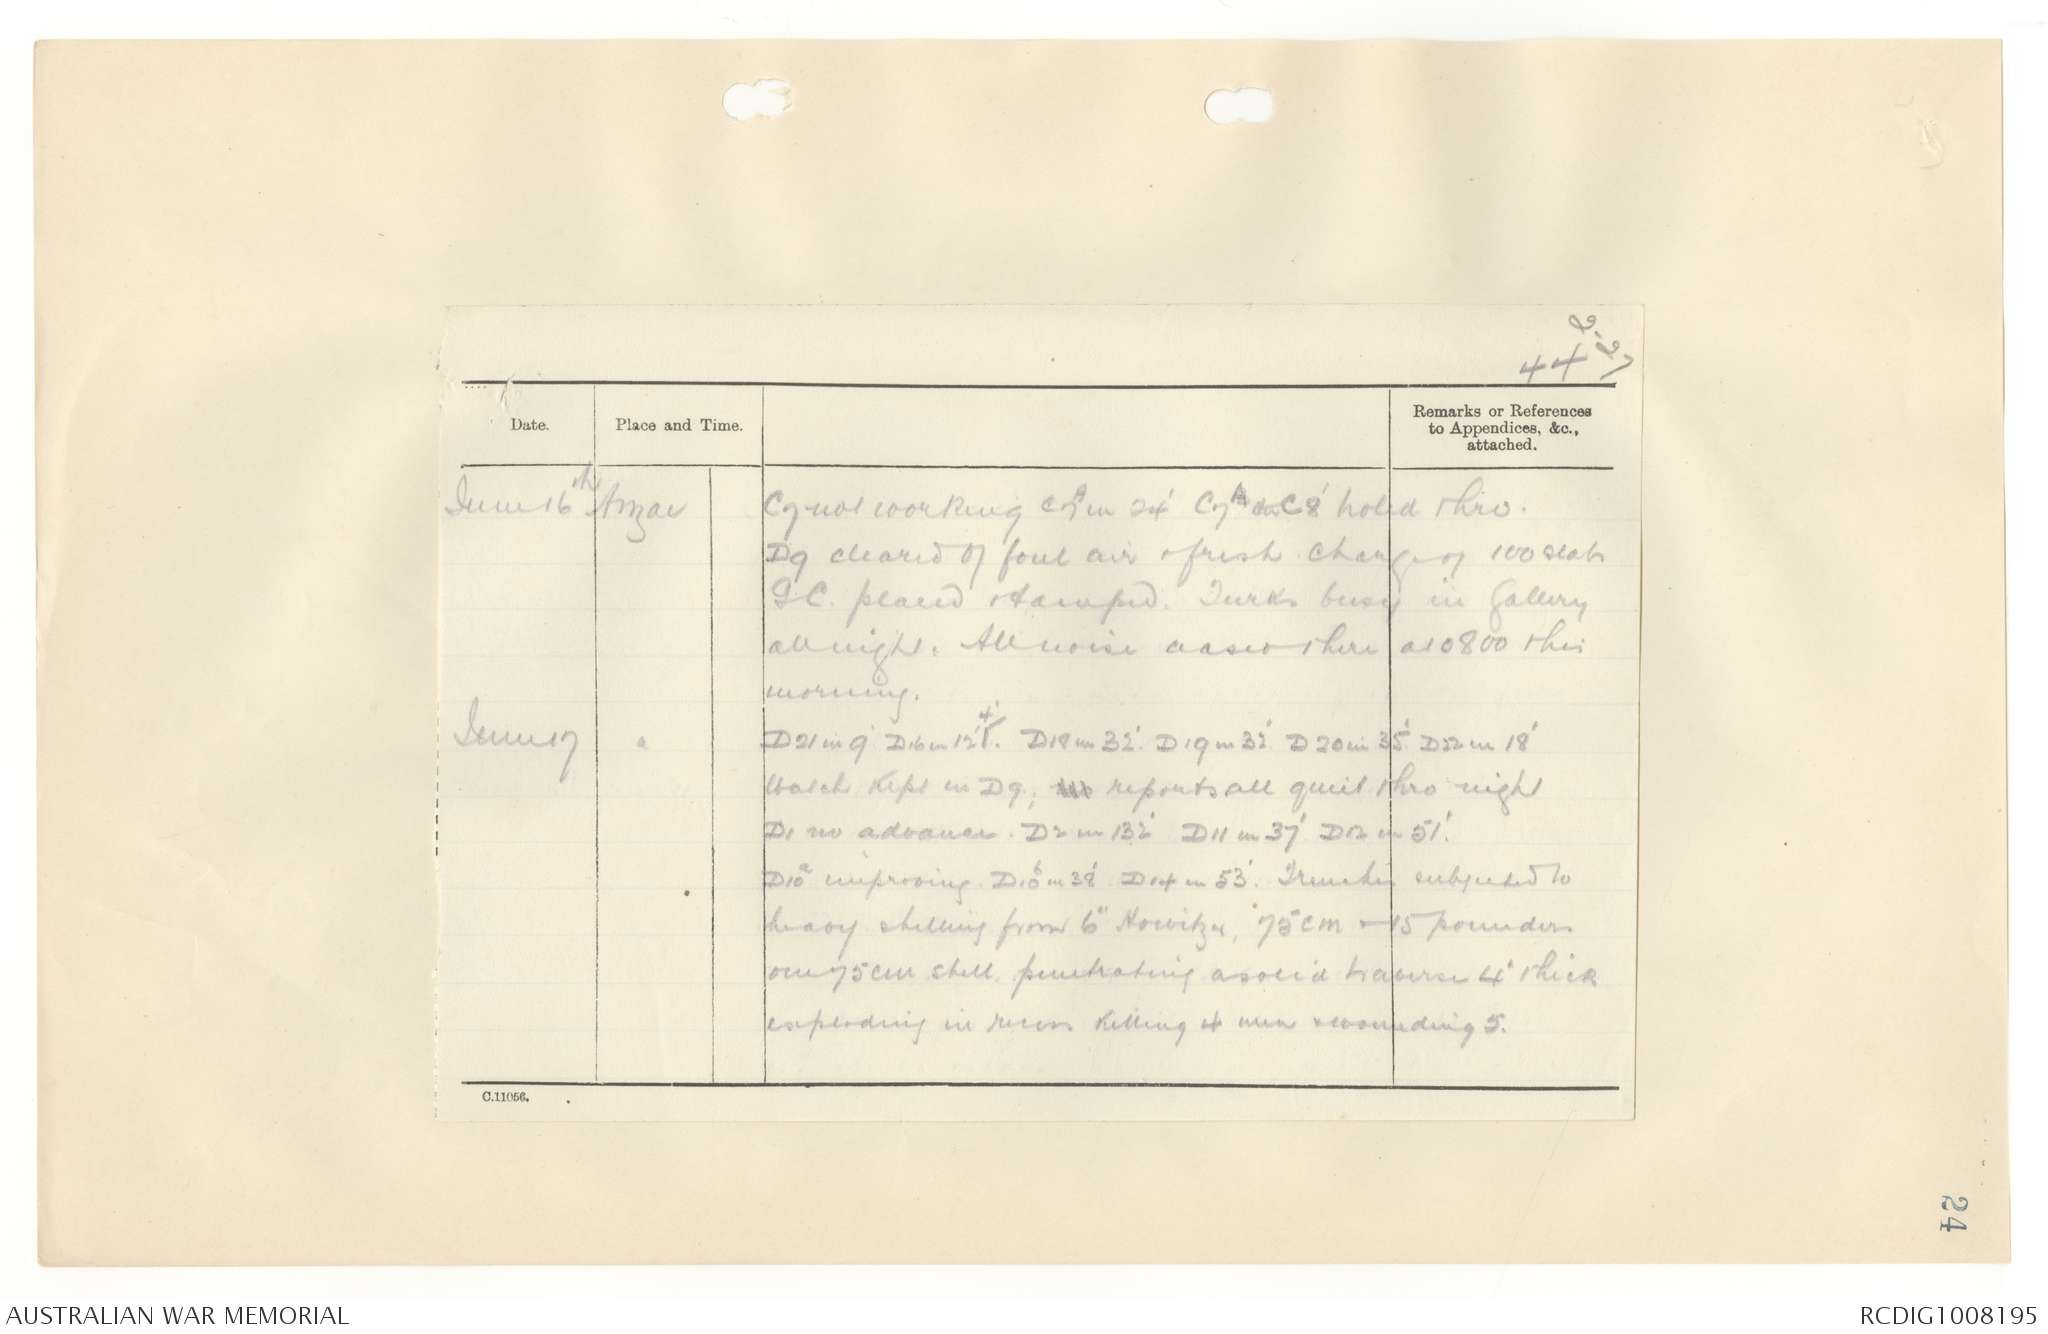 2-27
44
Date. Place and Time. Remarks or References to Appendices, &c., attached.
June 16th Anzac C7 not working C7A in 24' C7A C8' holed thro.
D9 cleared of foul air & fresh charge of 100 slabs
G C. placed & tamped. Turks busy in Gallery
all night. All noise ceased there at 0800 this
morning.
June 17 " D21 in 9' D16 in 12'4". D18 in 32' D19 in 32' D20 in 35' D22 in 18'
Watch kept in D9, reports all quiet thro night
D1 no advance. D2 in 132' D11 in 37' D12 in 51'.
D10a improving. D10b in 38' D14 in 53'. Trenches subjected to
heavy shelling from 6" Howitzer, 75cm & 15 pounders
one 75cm shell penetrating a solid traverse 4' thick
exploding in recess killing 4 men & wounding 5.
C.11056.
24
AUSTRALIAN WAR MEMORIAL
RCDIG1008195